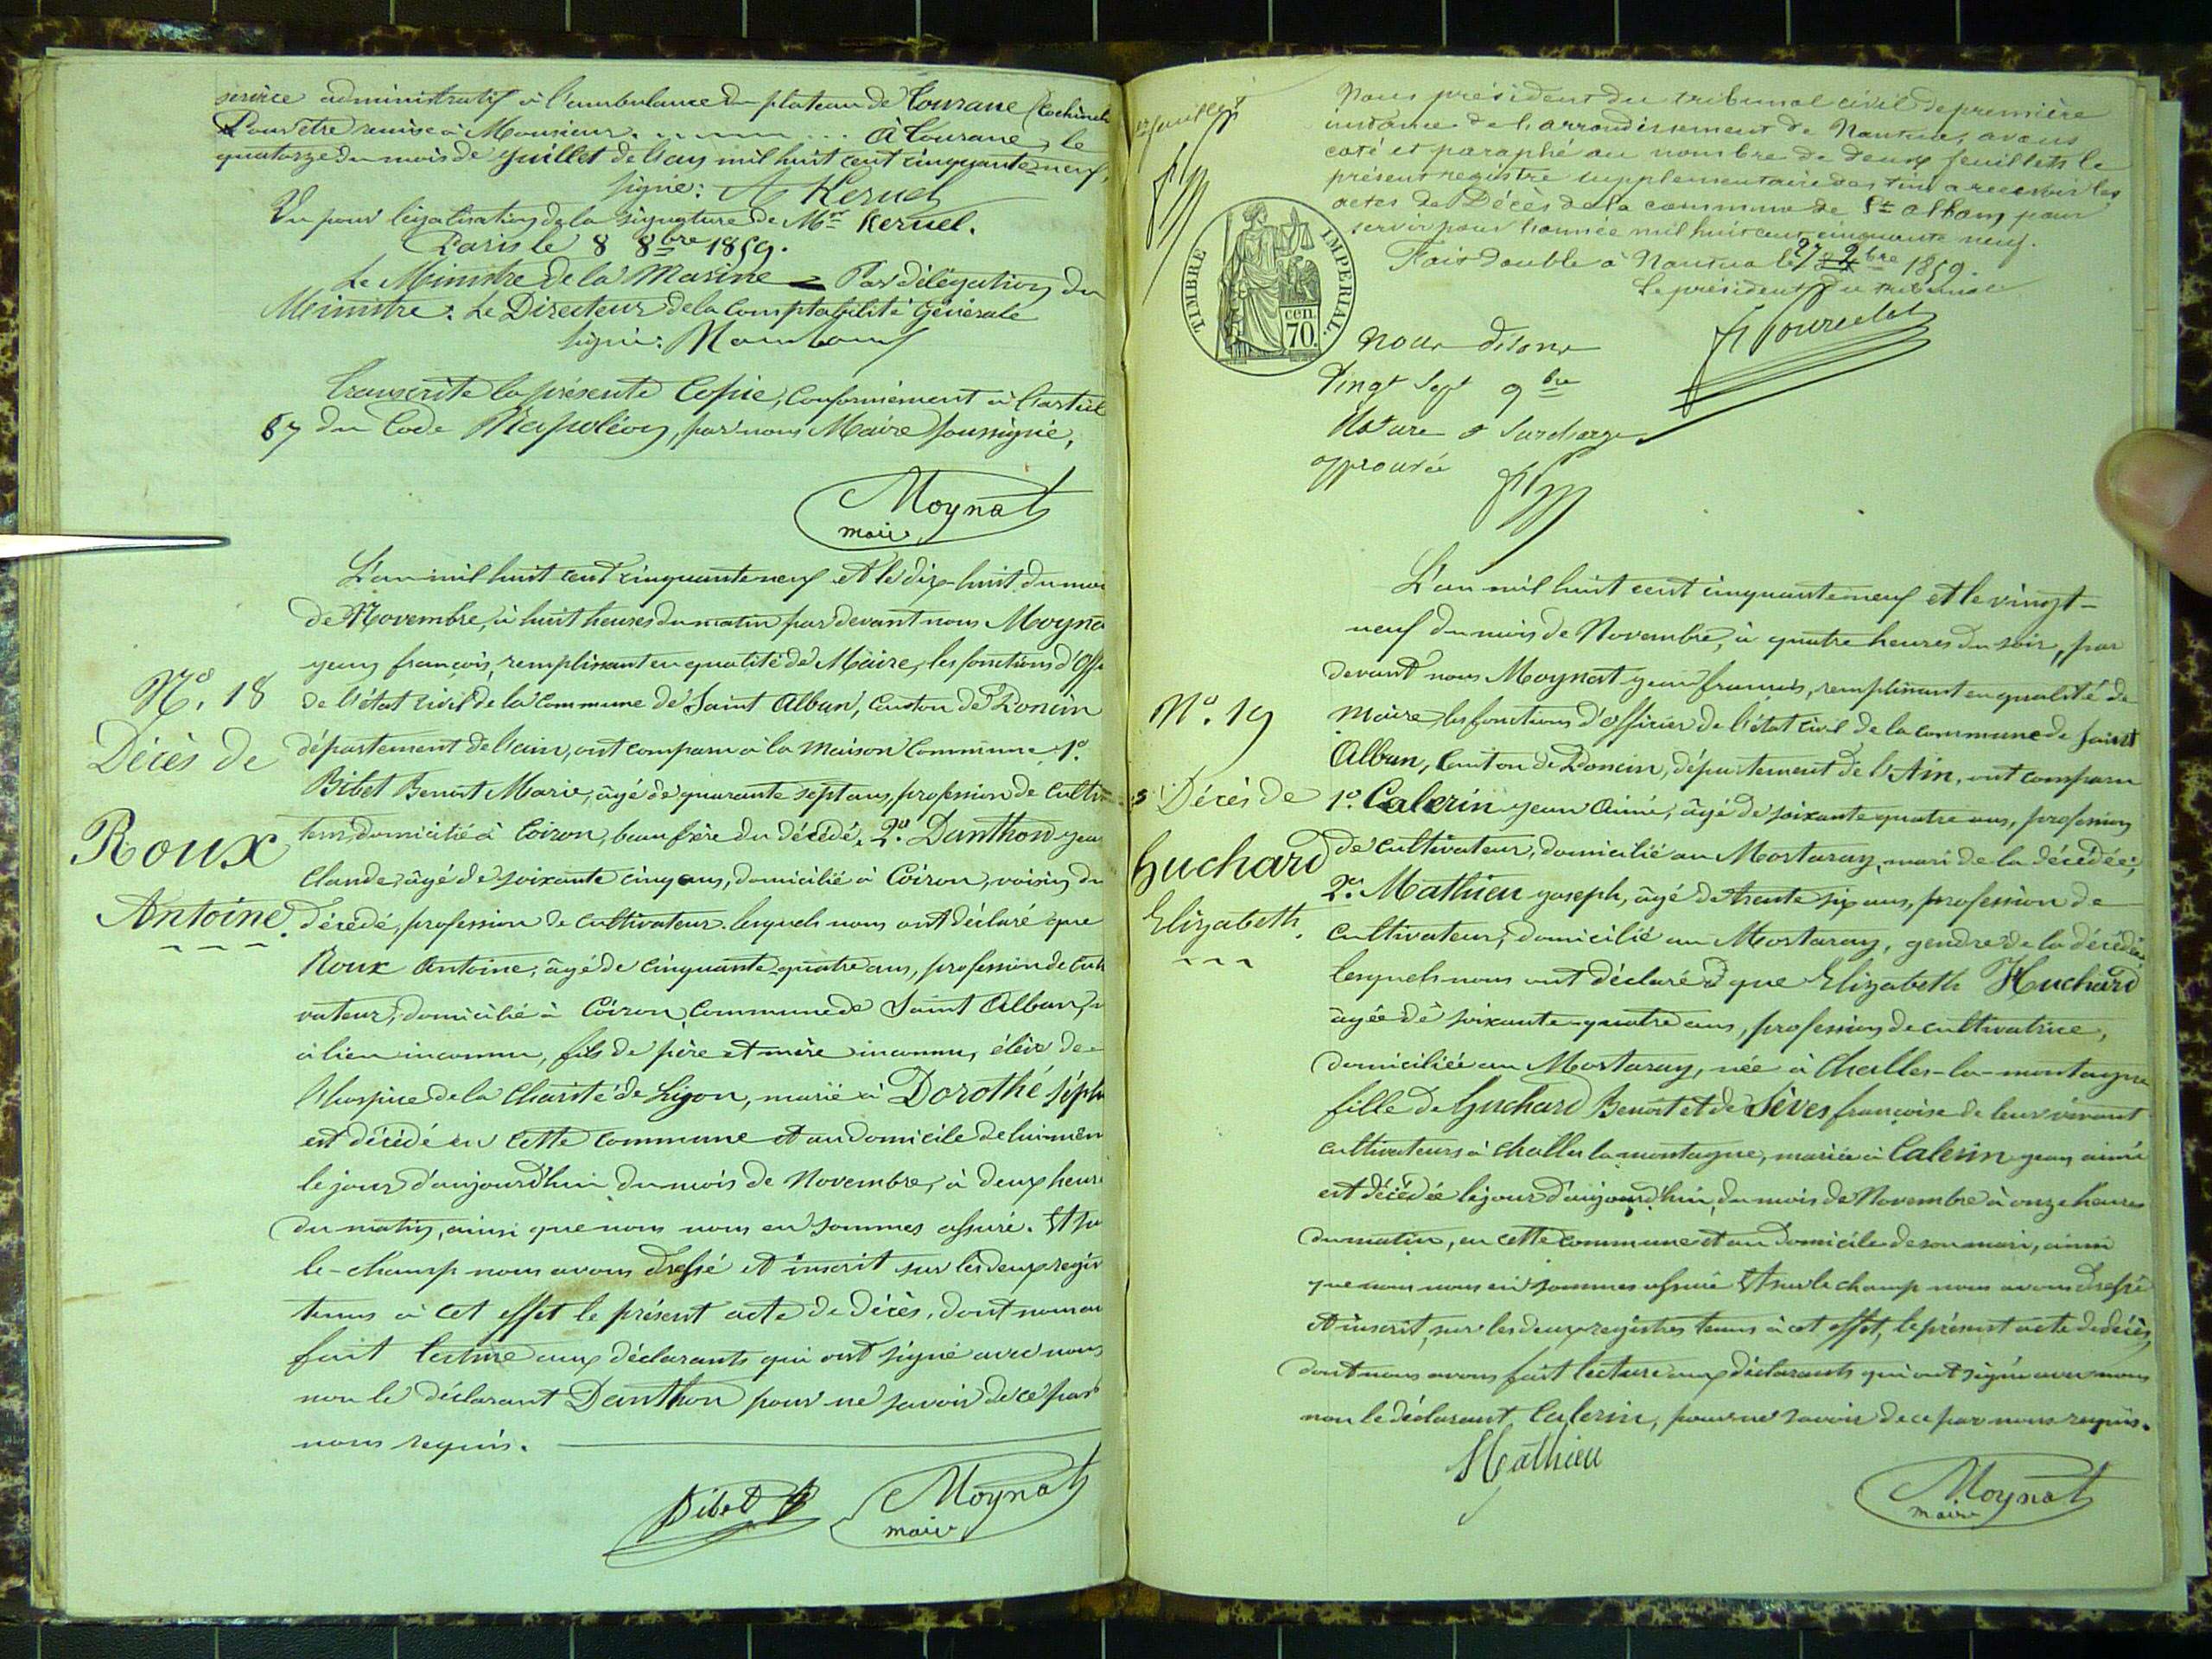 service administratif à l'ambulance du plateau de Tourane (Cochinch
Pour être remise à Monsieur. ... À Tourane, le
quatorze du mois de Juillet de l'an mil huit cent cinquante neuf,
signé: Kernel
Vu pour légalisation de la signature de Mr Kernel.
Paris le 8 8bre 1859.
Le Ministre de la Marine - Par délégation du
Ministre. Le Directeur de la Comptabilité Générale
signé:
Transcrite la présente Copie, conformément à l'articl
du Code Napoléon, par nous Maire soussigné,
Moynat
maire
L'an mil huit cent cinquante neuf et le dix-huit du moi
de Novembre, à huit heures du matin par devant nous Moyna
jean françois, remplissant en qualité de Maire, les fonctions d'Offi
de l'état civil de la Commune de Saint Alban, Canton de Poncin
département de l'ain, ont comparu à la Maison Commune 1º.
Bibet Benoit Marie, âgé de quarante sept ans, profession de Culti
teur, domicilié à Coiron, beau frère du décédé. 2º. Danthon jea
Claude, âgé de soixante cinq ans, domicilié à Coiron, voisin du
décédé, profession de Cultivateur. lesquels nous ont déclaré que
Roux Antoine, âgé de cinquante-quatre ans, profession de Cult
vateur, domicilié à Coiron Commune de Saint Alban, n
à lieu inconnu, fils de père et mère inconnu, élève de
l'hospice de la Charité de Lyon, marié à Dorothé
est décédé en cette commune et au domicile de lui mêm
le jour d'aujourd'hui du mois de Novembre, à deux heure
du matin, ainsi que nous nous en sommes assuré. Et su
le-champ nous avons dressé et inscrit sur les deux regis
tenus à cet effet le présent acte de décès, dont nous av
fait lecture aux déclarants qui ont signé avec nous
non le déclarant Danthon pour ne savoir de ce par
nous requis.
Bibet
Moynat
maire
Nº. 18
Décès de
Roux
Antoine.
Nous président du tribunal civil de première
instance de l'arrondissement de Nantua, avons
coté et paraphé au nombre de deux feuillets le
présent registre supplémentaire destiné a recevoir les
actes de Décès de la commune de St alban, pour
servir pour l'année mil huit cent cinquante neuf.
Fait double à Nantua le 27 9bre 1859.
Le président du tribunal
TIMBRE IMPERIAL.
cen.
70.
nous disons
vingt sept 9bre
Rature & Surcharge
approuvée
L'an mil huit cent cinquante neuf et le vingt-
neuf du mois de Novembre, à quatre heures du soir, par
devant nous Moynat jean françois, remplissant en qualité de
Maire, les fonctions d'Officier de l'état civil de la commune de Saint
Alban, Canton de Poncin, département de l'Ain, ont comparu
1º. Calerin jean aimé, âgé de soixante quatre ans, profession
de cultivateur, domicilié au Mortaray, mari de la décédée;
2º. Mathieu joseph, âgé de trente six ans, profession de
cultivateur, domicilié au Mortaray, gendre de la décédée
lesquels nous ont déclaré que Elizabeth Huchard
âgée de soixante-quatre ans, profession de cultivatrice,
domiciliée au Mortaray, née à Challes-la-montagne
fille de Huchard Benoit et de Sèves françoise de leur vivant
cultivateurs à Challes la montagne, mariée à Calerin jean aimé
est décédée le jour d'aujourd'hui, du mois de Novembre à onze heures
du matin, en cette commune et au domicile de son mari, ainsi
que nous nous en sommes assuré Et sur le champ nous avons dressé
et inscrit, sur les deux registres tenus à cet effet, le présent acte de décès,
dont nous avons fait lecture aux déclarants qui ont signé avec nous
non le déclarant Calerin, pour ne savoir de ce par nous requis.
Mathieu
Moynat
maire
Nº. 19
Décès de
Huchard
Elizabeth.